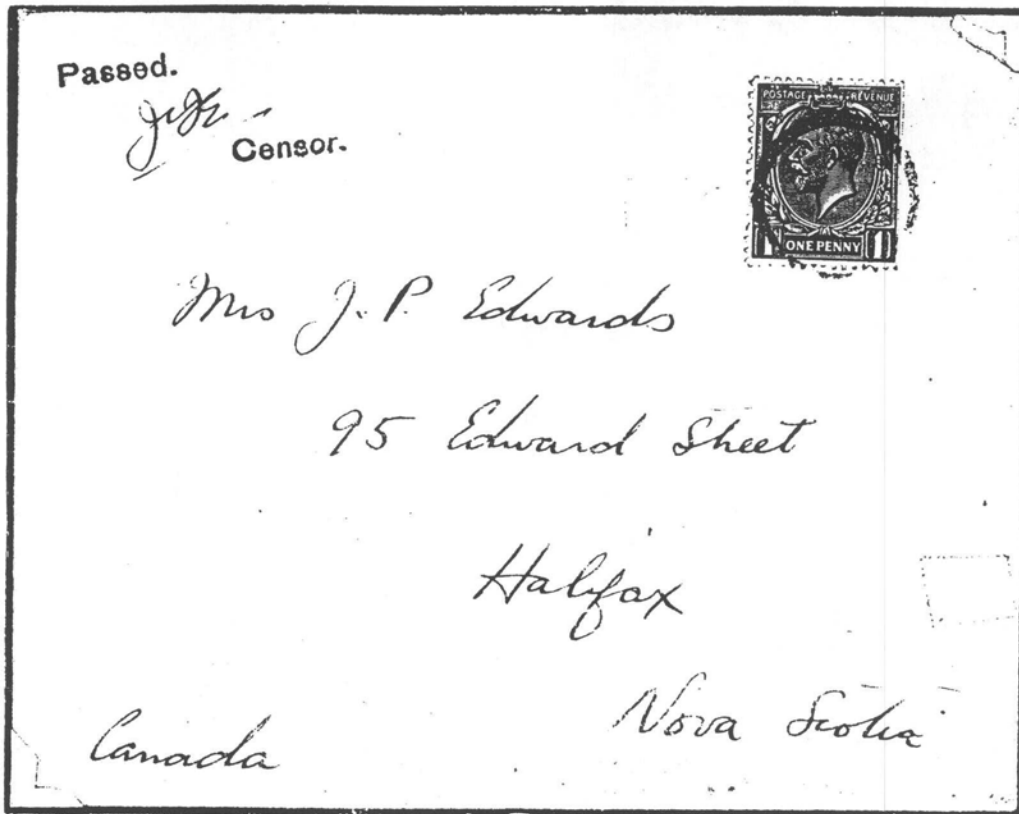 Passed.
Censor.
POSTAGE REVENUE
1 ONE PENNY 1
Mrs J. P. Edwards
95 Edward Street
Halifax
Nova Scotia
Canada